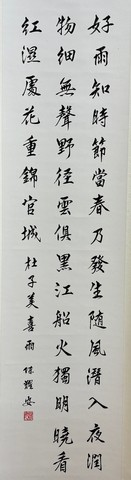 好雨知時節當春乃發生随風潛入夜潤
物細無聲野径雲俱黑江船火獨明曉看
紅濕處花重錦官城 杜子美喜雨